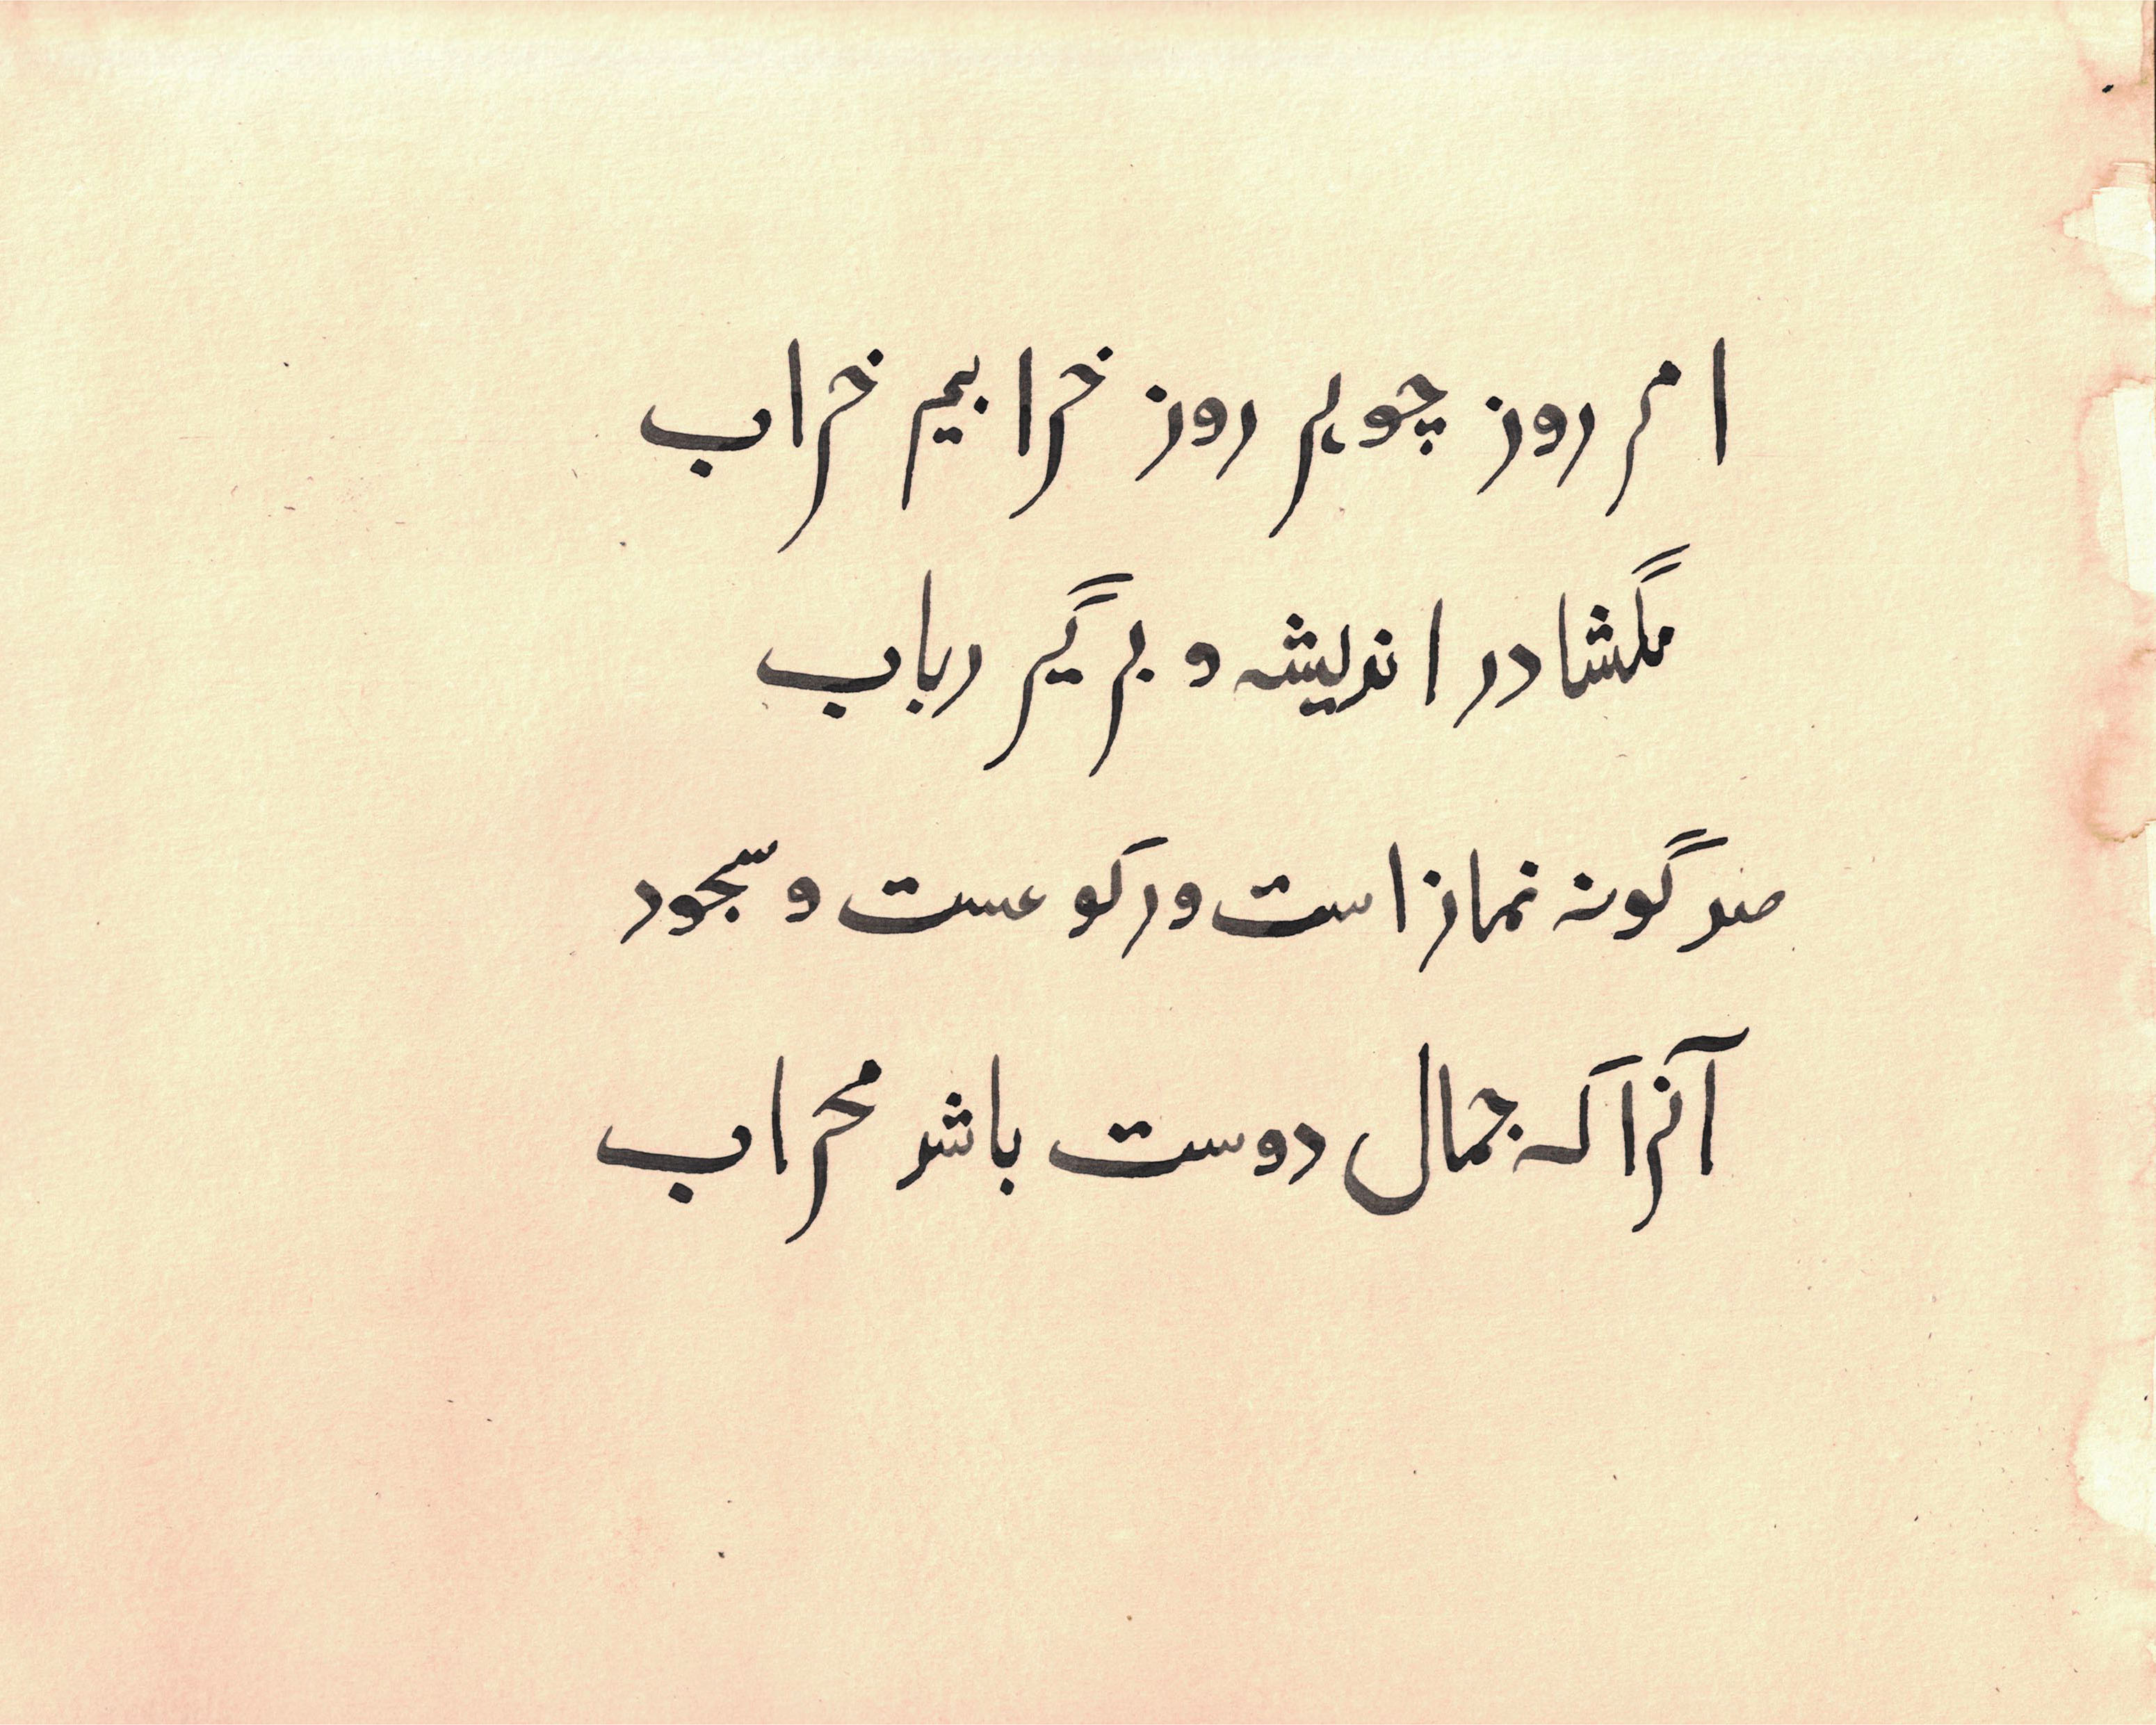 امروز چو هر روز خرابیم خراب
مگشا در اندیشه و برگیر رباب
صد گونه نماز است و رکوعست و سجود
آنرا که جمال دوست باشد محراب